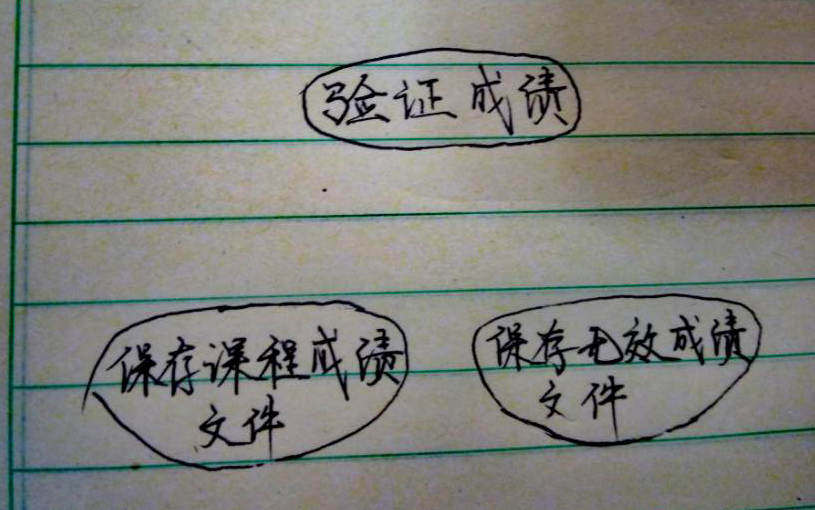 验证成绩
保存课程成绩
文件
保存无效成绩
文件